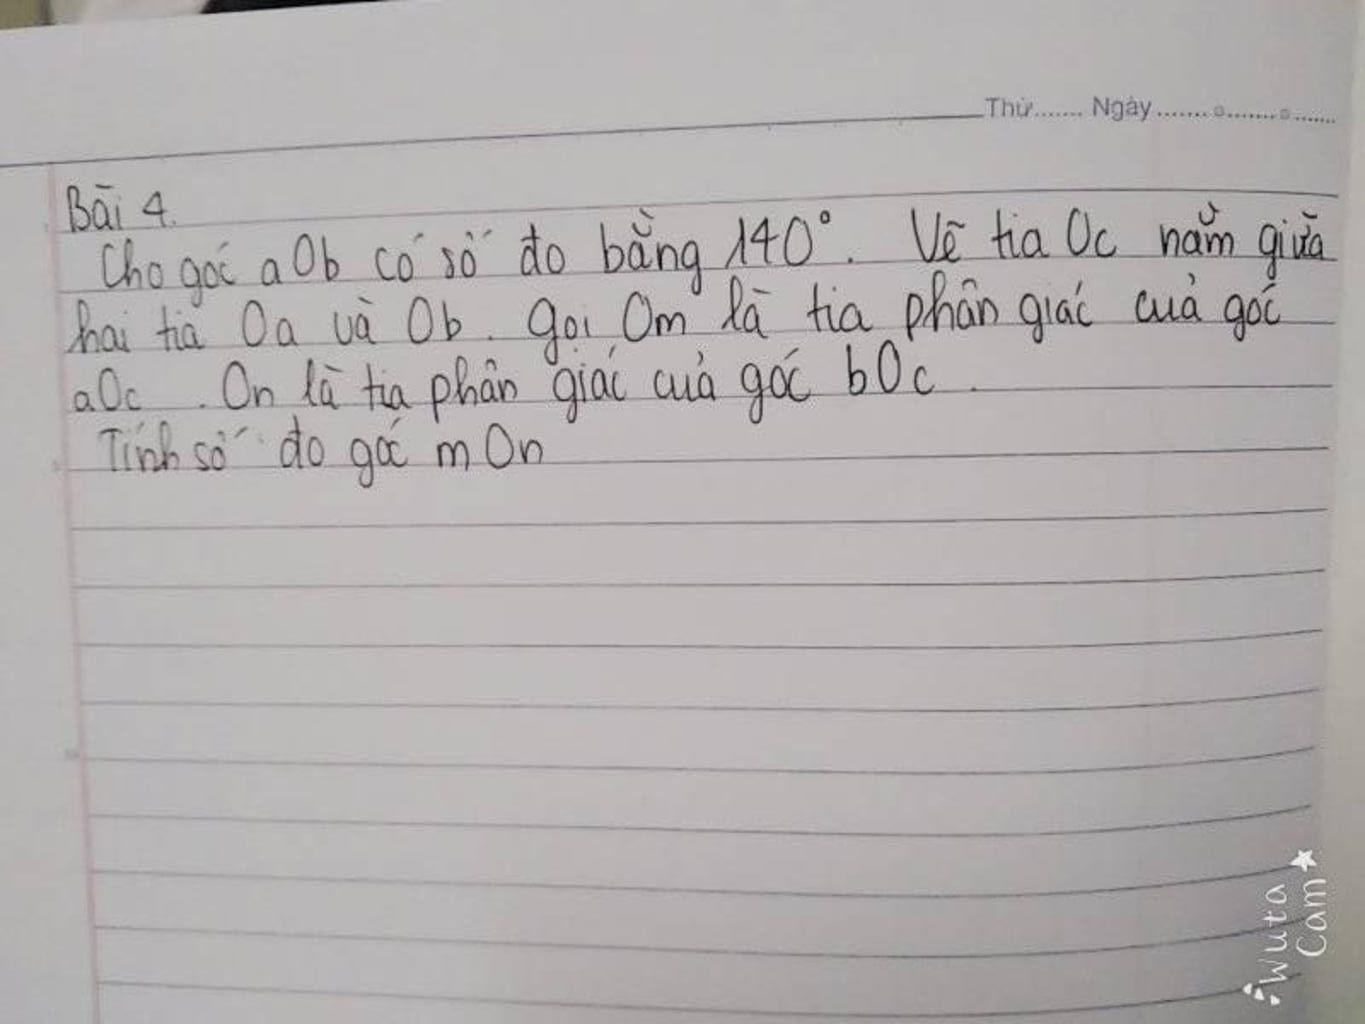 Thứ....... Ngày.......
Bài 4.
Cho góc aOb có số đo bằng 140°. Vẽ tia Oc nằm giữa
hai tia Oa và Ob. Gọi Om là tia phân giác cuả góc
aOc. On là tia phân giác cuả góc bOc.
Tính số đo góc mOn
Wuta
Cam